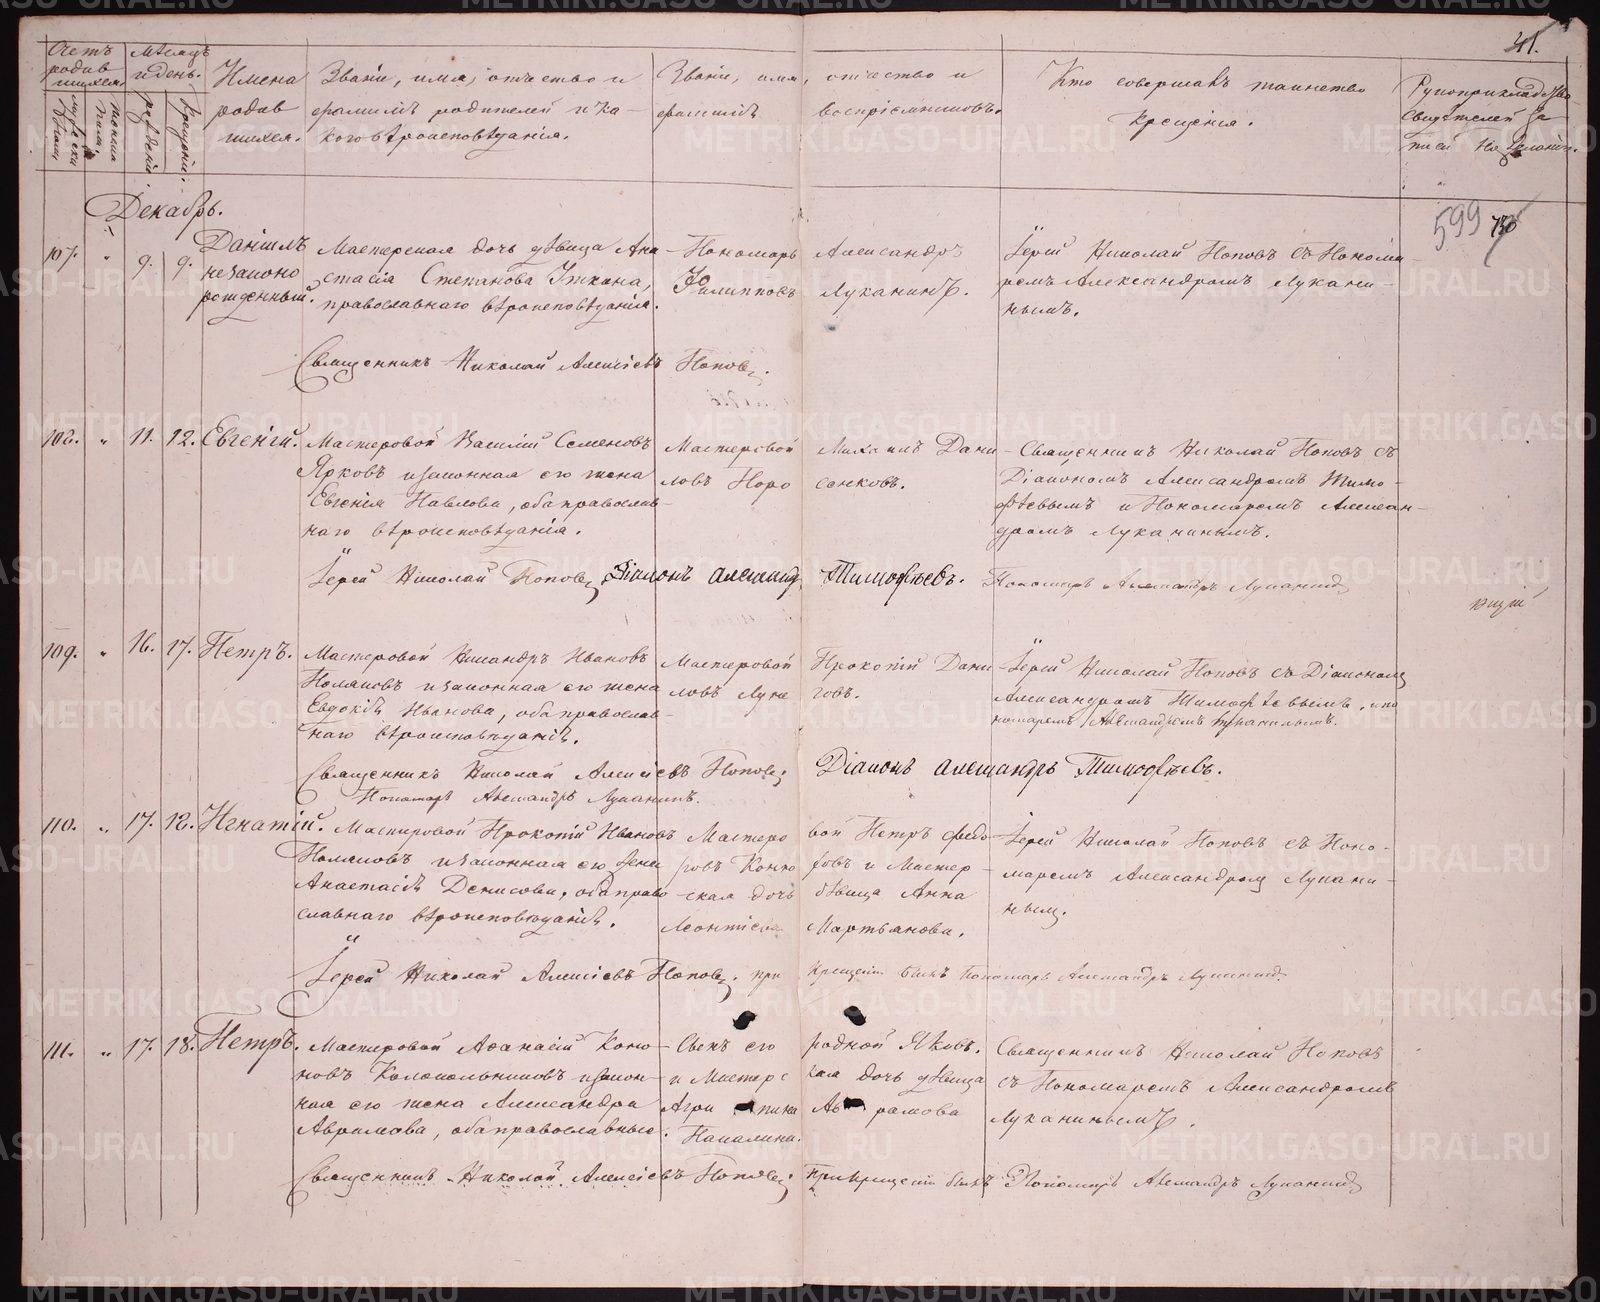 41.
Счетъ родив шихся.
Мѣсяцъ и день.
Имена родив шихся.
Званіе, имя, отчество и фамилія родителей и ка- кого вѣроисповѣданія.
Званіе, имя, отчество и фамилія воспріемниковъ.
Кто совершалъ таинство крещенія.
Рукоприкладство свидѣтелей за писи по желанію.
мужеска пола.
женска пола.
рожденія
крещенія.
599
Декабрь.
107. " 9. 9.
Даніилъ
незаконо
рожденный.
Мастерская дочь дѣвица Ана
стасія Степанова Уткина,
православнаго вѣроисповѣданія.
Пономарь Александръ
Филипповъ Луканинъ.
Іерей Николай Поповъ съ Понома-
ремъ Александромъ Лукани-
нымъ.
Священникъ Николай Алексіевъ Поповъ.
108. " 11. 12. Евгеній.
Мастеровой Василій Семеновъ
Ярковъ и законная его жена
Евгенія Павлова, оба православ-
наго вѣроисповѣданія.
Мастеровой Михаилъ Дани
ловъ Поро сенковъ.
Священникъ Николай Поповъ съ
Діакономъ Александромъ Тимо-
фѣевымъ и Пономаремъ Алексан-
дромъ Луканинымъ.
Іерей Николай Поповъ Діаконъ Александръ Тимофѣевъ. Пономарь Александръ Луканинъ
109. " 16. 17. Петръ.
Мастеровой Никандръ Ивановъ
Поляковъ и законная его жена
Евдокія Иванова, оба православ-
наго вѣроисповѣданія.
Мастеровой Прокопій Дани
ловъ Луне говъ.
Іерей Николай Поповъ съ Діакономъ
Александромъ Тимофѣевымъ, и по
номаремъ Александромъ Луканинымъ.
Священникъ Николай Алексіевъ Поповъ. Діаконъ Александръ Тимофѣевъ.
Пономарь Александръ Луканинъ.
110. " 17. 18. Игнатій.
Мастеровой Прокопій Ивановъ
Поляковъ и законная его жена
Анастасія Денисова, оба право
славнаго вѣроисповѣданія.
Мастеро вой Петръ Федо
ровъ и Мастер
ская дочь дѣвица Анна
Леонтіева Мартьянова.
Іерей Николай Поповъ съ Поно-
маремъ Александромъ Лукани-
нымъ.
Іерей Николай Алексіевъ Поповъ. при крещеніи былъ Пономарь Александръ Луканинъ.
111. " 17. 18. Петръ.
Мастеровой Аѳанасій Коно-
новъ Колокольниковъ и закон-
ная его жена Александра
Аврамова, оба православные.
Сынъ его родной Яковъ.
и Мастерс кая дочь дѣвица
Агри пина Ав рамова
Священникъ Николай Поповъ
съ Пономаремъ Александромъ
Луканинымъ.
Священникъ Николай Алексіевъ Поповъ. При крещеніи былъ Пономарь Александръ Луканинъ
METRIKI.GASO-URAL.RU